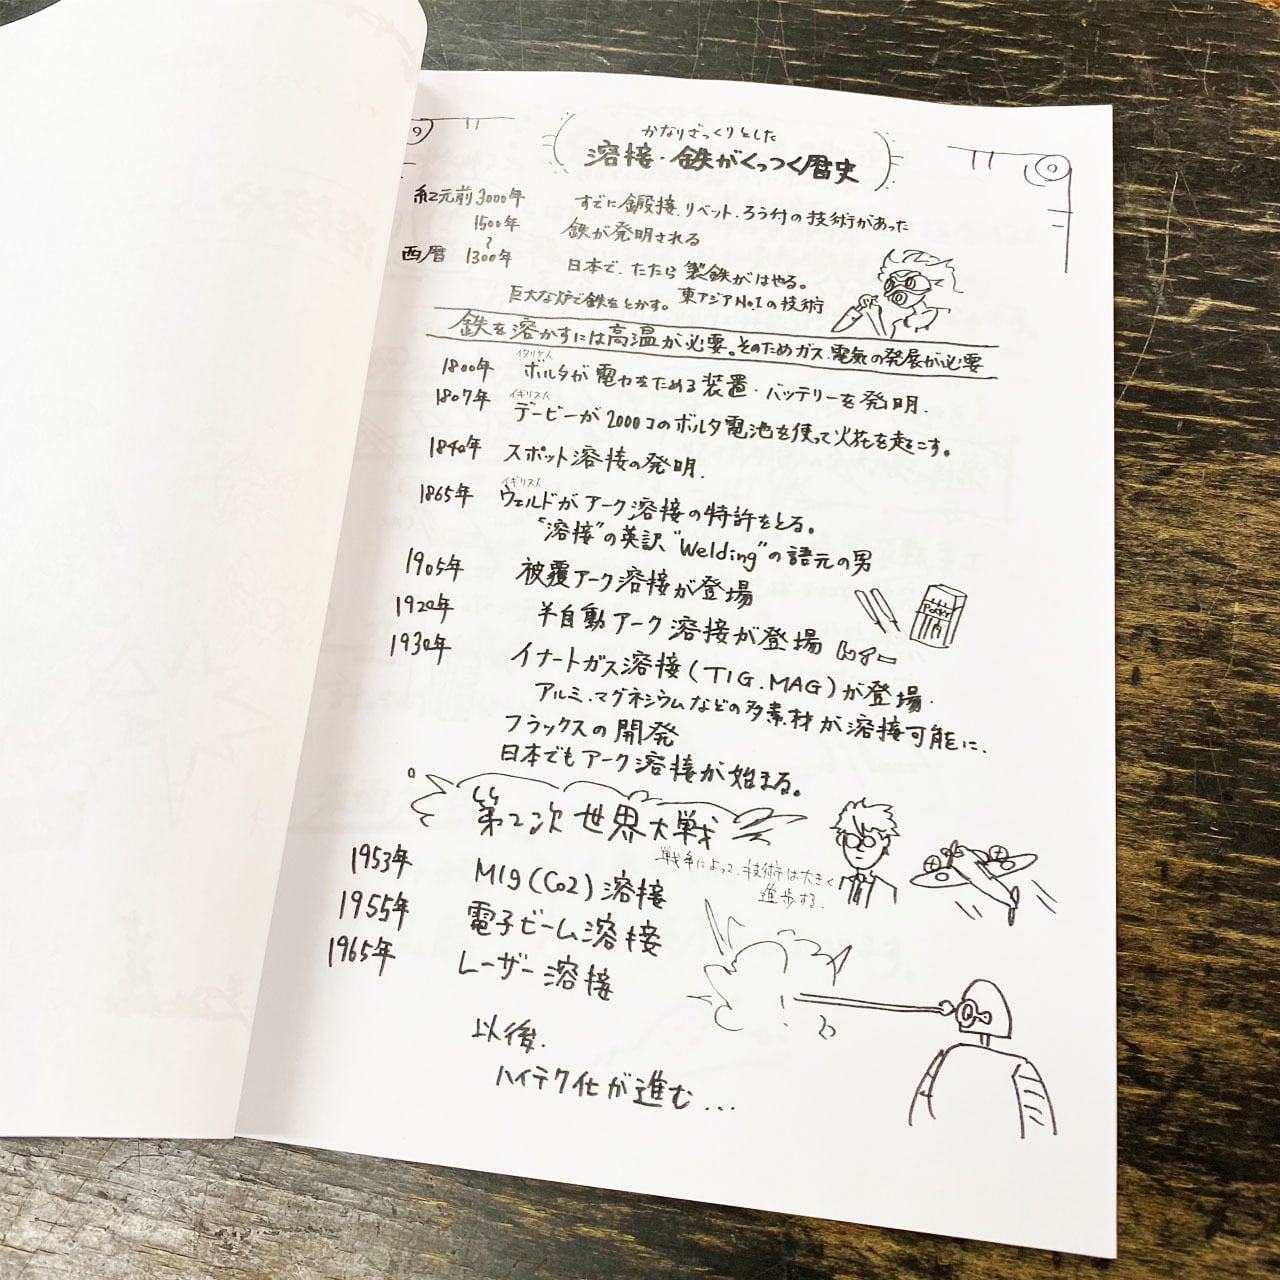 かなりざっくりとした
溶接・鉄がくっつく暦史
紀元前3000年 すでに鍛接、リベット、ろう付の技術があった
1500年 鉄が発明される
〜
西暦 1300年 日本で、たたら製鉄がはやる。
巨大な炉で鉄をとかす。 東アジアNo.1の技術
鉄を溶かすには高温が必要。そのためガス、電気の発展が必要
イタリヤ人
1800年 ボルタが電力をためる装置・バッテリーを発明.
イギリス人
1807年 デービーが2000コのボルタ電池を使って火花を起こす。
1840年 スポット溶接の発明.
イギリス人
1865年 ウェルドがアーク溶接の特許をとる。
"溶接"の英訳"Welding"の語元の男
1905年 被覆アーク溶接が登場
1920年 半自動アーク溶接が登場
1930年 イナートガス溶接(TIG.MAG)が登場.
アルミ、マグネシウムなどの多素材が溶接可能に.
フラックスの開発
日本でもアーク溶接が始まる。
第2次世界大戦
戦争によって、技術は大きく
進歩する.
1953年 MIg(Co2)溶接
1955年 電子ビーム溶接
1965年 レーザー溶接
以後.
ハイテク化が進む...